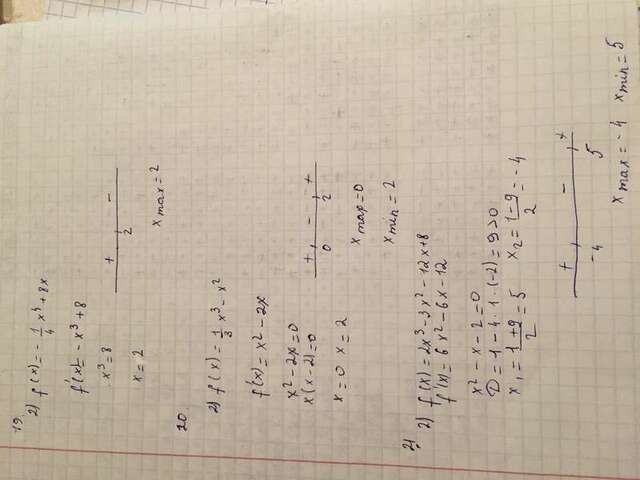 19.
2) f(x) = -1/4 x⁴ + 8x
f'(x) = -x³ + 8
x³ = 8
x = 2
+ -
2
x max = 2
20
2) f(x) = 1/3 x³ - x²
f'(x) = x² - 2x
x² - 2x = 0
x(x-2) = 0
x = 0 x = 2
+ - +
0 2
x max = 0
x min = 2
21
2) f(x) = 2x³ - 3x² - 12x + 8
f'(x) = 6x² - 6x - 12
x² - x - 2 = 0
D = 1 - 4 · 1 · (-2) = 9 > 0
x₁ = (1+9)/2 = 5 x₂ = (1-9)/2 = -4
+ - +
-4 5
x max = -4 x min = 5